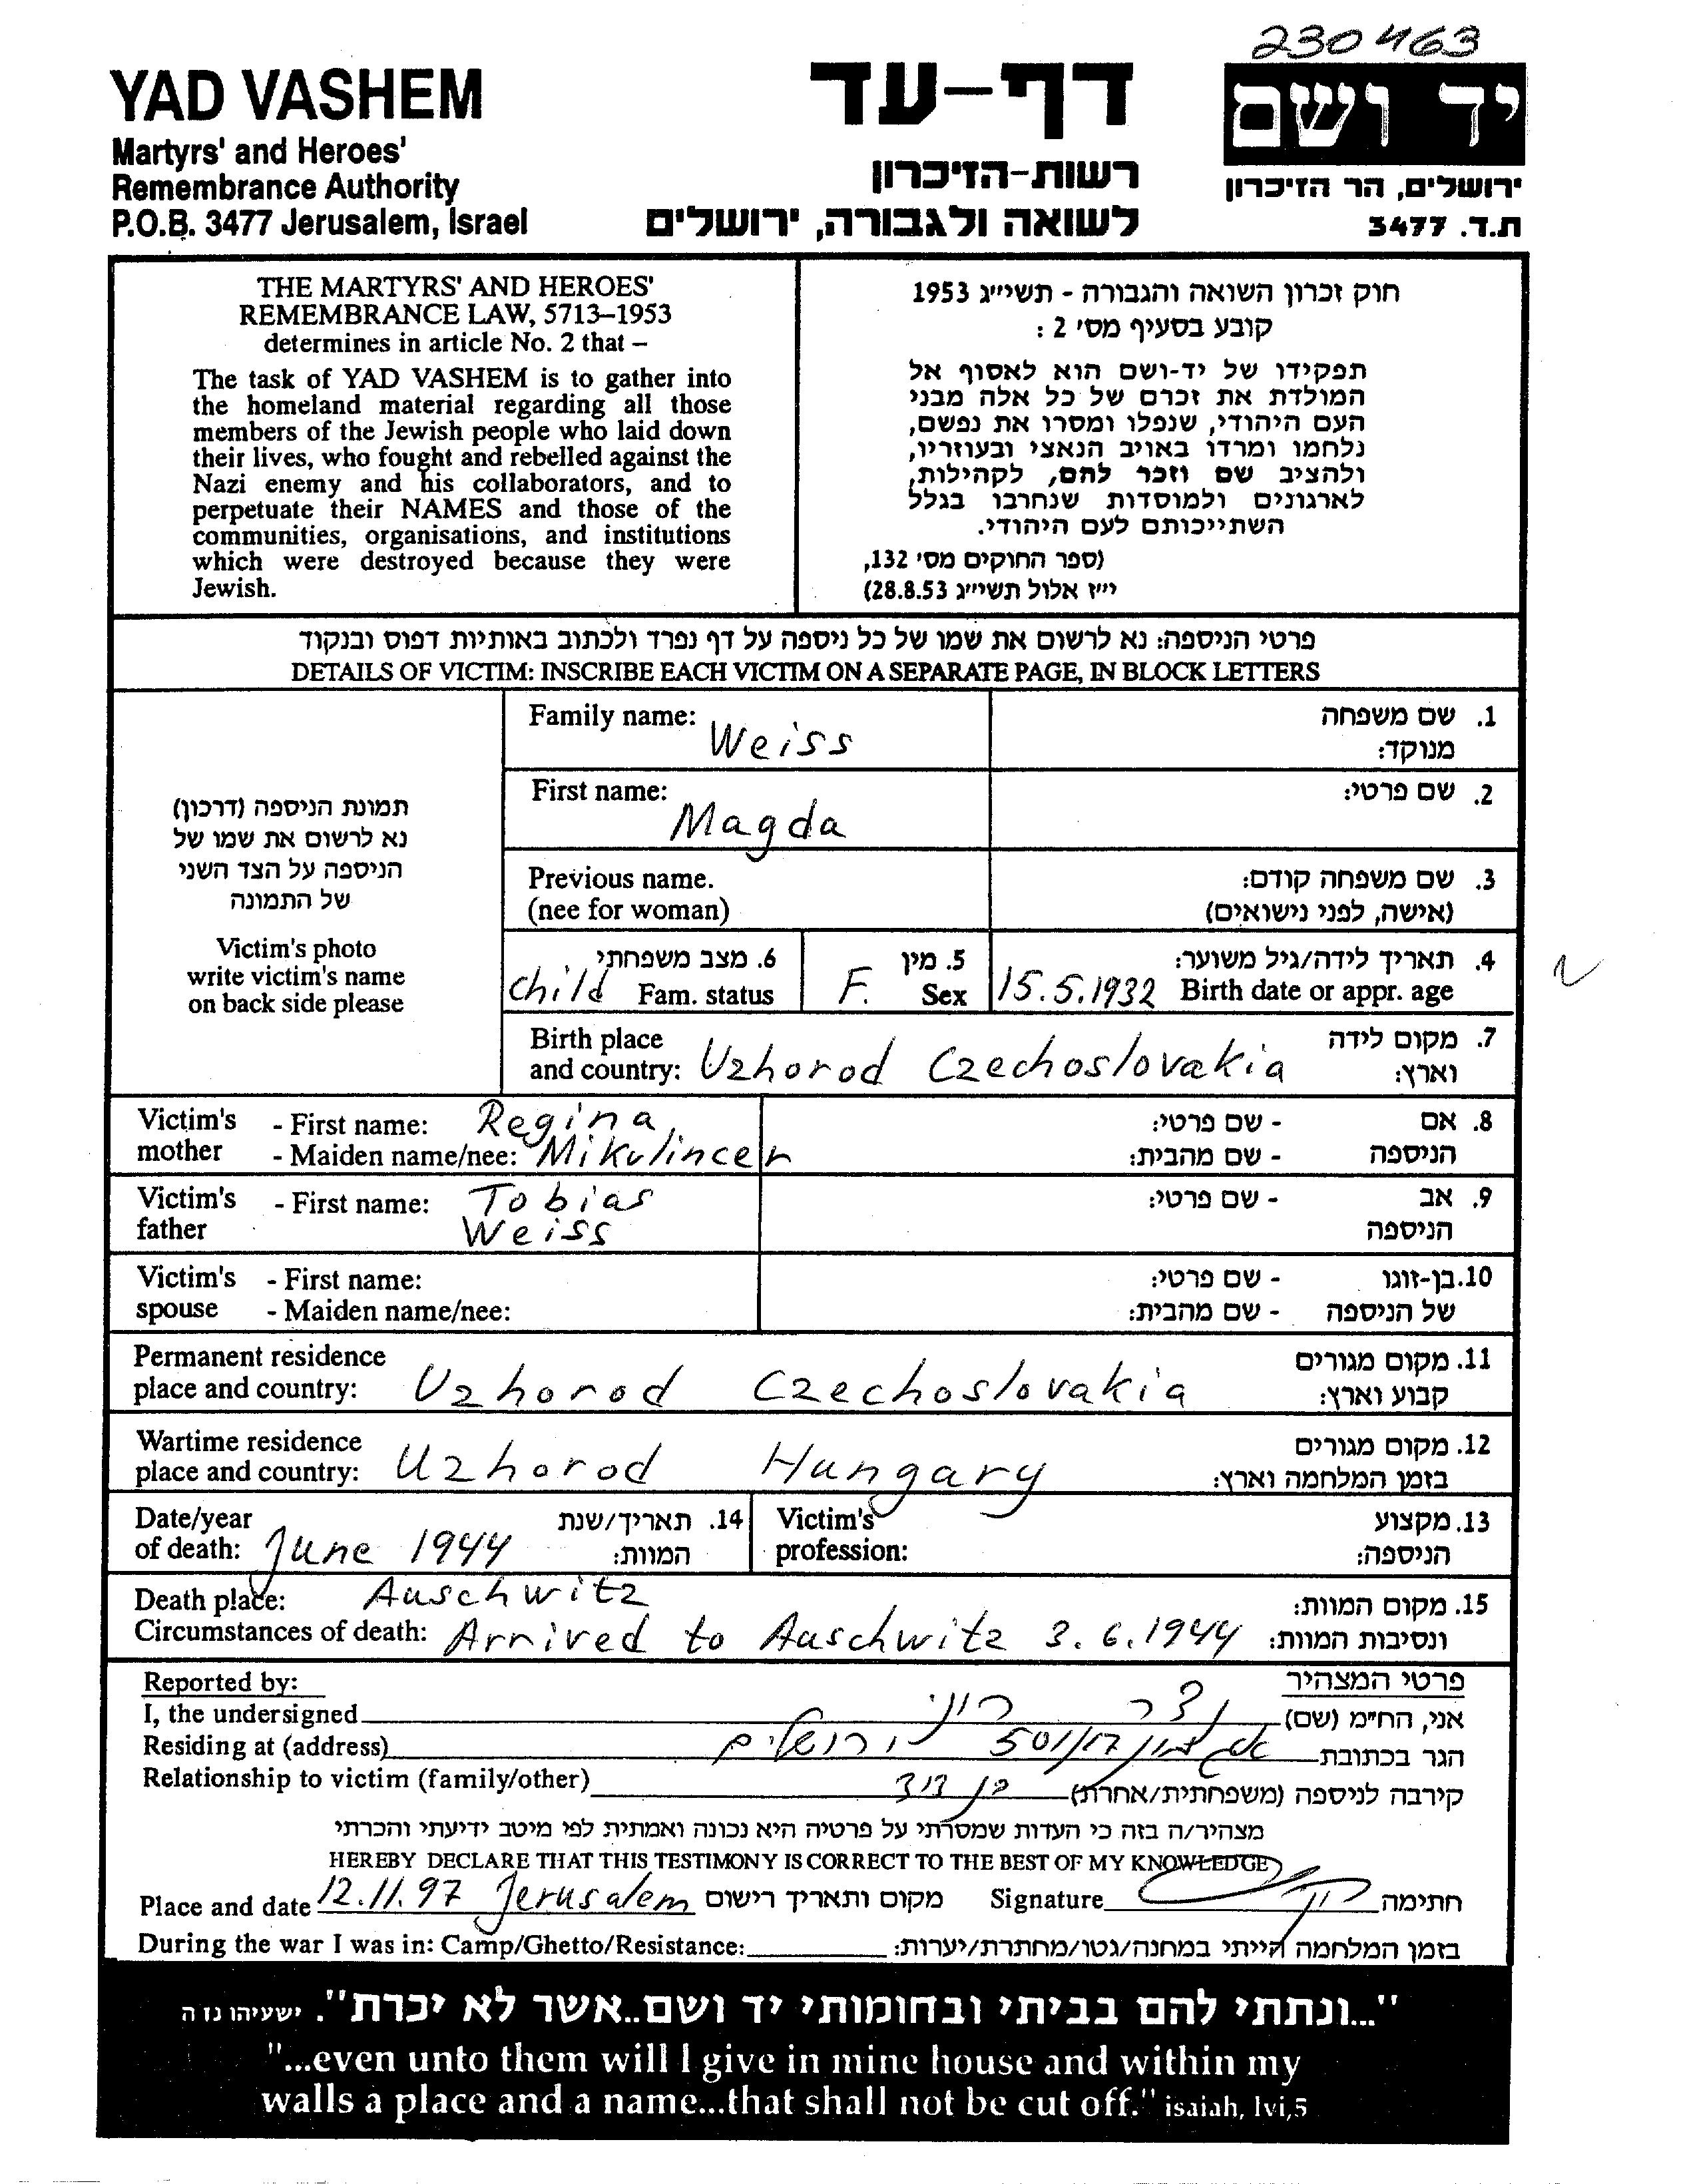 230463
YAD VASHEM
Martyrs' and Heroes'
Remembrance Authority
P.O.B. 3477 Jerusalem, Israel
דף-עד
רשות-הזיכרון
לשואה ולגבורה, ירושלים
יד ושם
ירושלים, הר הזיכרון
ת.ד. 3477
THE MARTYRS' AND HEROES'
REMEMBRANCE LAW, 5713–1953
determines in article No. 2 that –
The task of YAD VASHEM is to gather into
the homeland material regarding all those
members of the Jewish people who laid down
their lives, who fought and rebelled against the
Nazi enemy and his collaborators, and to
perpetuate their NAMES and those of the
communities, organisations, and institutions
which were destroyed because they were
Jewish.
חוק זכרון השואה והגבורה - תשי״ג 1953
קובע בסעיף מס׳ 2 :
תפקידו של יד-ושם הוא לאסוף אל
המולדת את זכרם של כל אלה מבני
העם היהודי, שנפלו ומסרו את נפשם,
נלחמו ומרדו באויב הנאצי ובעוזריו,
ולהציב שם וזכר להם, לקהילות,
לארגונים ולמוסדות שנחרבו בגלל
השתייכותם לעם היהודי.
(ספר החוקים מס׳ 132,
י״ז אלול תשי״ג 28.8.53)
פרטי הניספה: נא לרשום את שמו של כל ניספה על דף נפרד ולכתוב באותיות דפוס ובנקוד
DETAILS OF VICTIM: INSCRIBE EACH VICTIM ON A SEPARATE PAGE, IN BLOCK LETTERS
תמונת הניספה (דרכון)
נא לרשום את שמו של
הניספה על הצד השני
של התמונה
Victim's photo
write victim's name
on back side please
Family name: Weiss
1. שם משפחה
מנוקד:
First name: Magda
2. שם פרטי:
Previous name.
(nee for woman)
3. שם משפחה קודם:
(אישה, לפני נישואים)
child 6. מצב משפחתי
Fam. status
F. 5. מין
Sex
15.5.1932 4. תאריך לידה/גיל משוער:
Birth date or appr. age
Birth place
and country: Uzhorod Czechoslovakia
7. מקום לידה
וארץ:
Victim's - First name: Regina
mother - Maiden name/nee: Mikulincer
8. אם - שם פרטי:
הניספה - שם מהבית:
Victim's - First name: Tobias
father Weiss
9. אב - שם פרטי:
הניספה
Victim's - First name:
spouse - Maiden name/nee:
10. בן-זוגו - שם פרטי:
של הניספה - שם מהבית:
Permanent residence
place and country: Uzhorod Czechoslovakia
11. מקום מגורים
קבוע וארץ:
Wartime residence
place and country: Uzhorod Hungary
12. מקום מגורים
בזמן המלחמה וארץ:
Date/year
of death: June 1944
14. תאריך/שנת
המוות:
Victim's
profession:
13. מקצוע
הניספה:
Death place: Auschwitz
Circumstances of death: Arrived to Auschwitz 3.6.1944
15. מקום המוות:
ונסיבות המוות:
Reported by:
פרטי המצהיר
I, the undersigned
אני, הח״מ (שם)
Residing at (address) ירושלים
הגר בכתובת
Relationship to victim (family/other) בן דוד
קירבה לניספה (משפחתית/אחרת)
מצהיר/ה בזה כי העדות שמסרתי על פרטיה היא נכונה ואמתית לפי מיטב ידיעתי והכרתי
HEREBY DECLARE THAT THIS TESTIMONY IS CORRECT TO THE BEST OF MY KNOWLEDGE
Place and date 12.11.97 Jerusalem מקום ותאריך רישום Signature חתימה
During the war I was in: Camp/Ghetto/Resistance: בזמן המלחמה הייתי במחנה/גטו/מחתרת/יערות:
"...ונתתי להם בביתי ובחומותי יד ושם..אשר לא יכרת". ישעיהו נו ה
"...even unto them will I give in mine house and within my
walls a place and a name...that shall not be cut off." isaiah, lvi,5